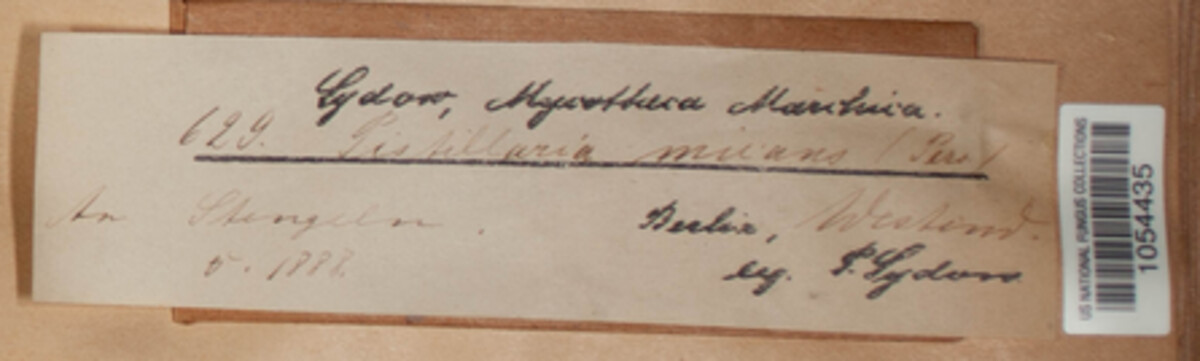 Sydow, Mycotheca Marchica.
629. Pistillaria micans (Pers)
An Stengeln.
Berlin, Westend.
5. 1888.
leg. P. Sydow
US NATIONAL FUNGUS COLLECTIONS
1054435